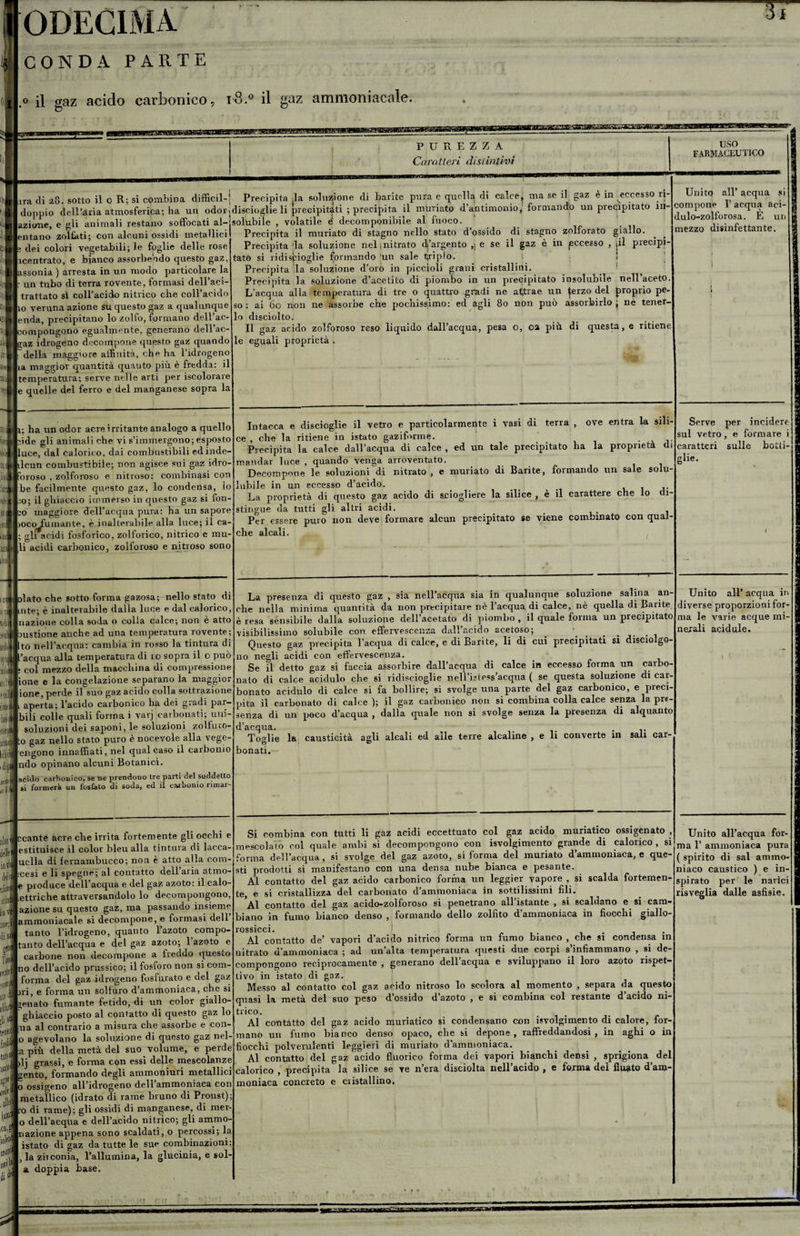 ODECIMA
31
CONDA PARTE
.º il gaz acido carbonico, 18.º il gaz ammoniacale.
PUREZZA
Caratteri distintivi
USO
FARMACEUTICO
ura di 28. sotto il o R; si combina difficil-
doppio dell'aria atmosferica; ha un odor
azione, e gli animali restano soffocati al-
entano zolfati; con alcuni ossidi metallici
e dei colori vegetabili; le foglie delle rose
icentrato, e bianco assorbendo questo gaz,
assonia) arresta in un modo particolare la
un tubo di terra rovente, formasi dell'aci-
trattato sì coll'acido nitrico che coll'acido
no veruna azione su questo gaz a qualunque
enda, precipitano lo zolfo, formano dell'ac-
compongono egualmente, generano dell'ac-
gaz idrogeno decompone questo gaz quando
della maggiore affinità, che ha l'idrogeno
na maggior quantità quauto più è fredda: il
temperatura; serve nelle arti per iscolorare
e quelle del ferro e del manganese sopra la
Precipita la soluzione di barite pura e quella di calce, ma se il gaz è in eccesso ri-
discioglie li precipitati; precipita il muriato d'antimonio, formando un precipitato in-
solubile, volatile e decomponibile al fuoco.
Precipita il muriato di stagno nello stato d'ossido di stagno zolforato giallo.
Precipita la soluzione nel nitrato d'argento, e se il gaz è in eccesso, il precipi-
tato si ridiscioglie formando un sale triplo.
Precipita la soluzione d'oro in piccioli grani cristallini.
Precipita la soluzione d'acetito di piombo in un precipitato insolubile nell'aceto.
L'acqua alla temperatura di tre o quattro gradi ne attrae un terzo del proprio pe-
so: ai 60 non ne assorbe che pochissimo: ed agli 80 non può assorbirlo, nè tener-
lo disciolto.
Il gaz acido zolforoso reso liquido dall'acqua, pesa 0, 02 più di questa, e ritiene
le eguali proprietà.
Unito all'acqua si
compone l'acqua aci-
dulo-zolforosa. È un
mezzo disinfettante.
a; ha un odor acre irritante analogo a quello
cide gli animali che vi s'immergono; esposto
luce, dal calorico, dai combustibili ed inde-
alcun combustibile; non agisce sui gaz idro-
foroso, zolforoso e nitroso: combinasi con
be facilmente questo gaz, lo condensa, lo
co; il ghiaccio immerso in questo gaz si fon-
co maggiore dell'acqua pura: ha un sapore
poco fumante, è inalterabile alla luce; il ca-
; gli acidi fosforico, zolforico, nitrico e mu-
li acidi carbonico, zolforoso e nitroso sono
Intacca e discioglie il vetro e particolarmente i vasi di terra, ove entra la sili-
ce, che la ritiene in istato gaziforme.
Precipita la calce dall'acqua di calce, ed un tale precipitato ha la proprietà di
mandar luce, quando venga arroventato.
Decompone le soluzioni di nitrato, e muriato di Barite, formando un sale solu-
lubile in un eccesso d'acido.
La proprietà di questo gaz acido di sciogliere la silice, è il carattere che lo di-
stingue da tutti gli altri acidi.
Per essere puro non deve formare alcun precipitato se viene combinato con qual-
che alcali.
Serve per incidere
sul vetro, e formare i
caratteri sulle botti-
glie.
olato che sotto forma gazosa; nello stato di
ante; è inalterabile dalla luce e dal calorico,
nazione colla soda o colla calce; non è atto
bustione anche ad una temperatura rovente;
lto nell'acqua: cambia in rosso la tintura di
l'acqua alla temperatura di 10 sopra il 0 può
e col mezzo della macchina di compressione
ione e la congelazione separano la maggior
ione, perde il suo gaz acido colla sottrazione
aperta; l'acido carbonico ha dei gradi par-
bili colle quali forma i varj carbonati; uni-
soluzioni dei saponi, le soluzioni zolfuro-
to gaz nello stato puro è nocevole alla vege-
vengono innaffiati, nel qual caso il carbonio
ndo opinano alcuni Botanici.
acido carbonico, se ne prendono tre parti del suddetto
si formerà un fosfato di soda, ed il carbonio rimar-
La presenza di questo gaz, sia nell'acqua sia in qualunque soluzione salina an-
che nella minima quantità da non precipitare nè l'acqua di calce, nè quella di Barite
è resa sensibile dalla soluzione dell'acetato di piombo, il quale forma un precipitato
visibilissimo solubile con effervescenza dall'acido acetoso;
Questo gaz precipita l'acqua di calce, e di Barite, li di cui precipitati si disciolgo-
no negli acidi con effervescenza.
Se il detto gaz si faccia assorbire dall'acqua di calce in eccesso forma un carbo-
nato di calce acidulo che si ridiscioglie nell'istess'acqua (se questa soluzione di car-
bonato acidulo di calce si fa bollire; si svolge una parte del gaz carbonico, e preci-
pita il carbonato di calce); il gaz carbonico non si combina colla calce senza la pre-
senza di un poco d'acqua, dalla quale non si svolge senza la presenza di alquanto
d'acqua.
Toglie la causticità agli alcali ed alle terre alcaline, e li converte in sali car-
bonati.
Unito all'acqua in
diverse proporzioni for-
ma le varie acque mi-
nerali acidule.
ccante acre che irrita fortemente gli occhi e
estituisce il color bleu alla tintura di lacca-
uella di fernambucco; non è atto alla com-
ccesi e li spegne; al contatto dell'aria atmo-
e produce dell'acqua e del gaz azoto: il calo-
lettriche attraversandolo lo decompongono,
azione su questo gaz, ma passando insieme
ammoniacale si decompone, e formasi dell'
tanto l'idrogeno, quanto l'azoto compo-
tanto dell'acqua e del gaz azoto; l'azoto e
carbone non decompone a freddo questo
no dell'acido prussico; il fosforo non si com-
forma del gaz idrogeno fosfurato e del gaz
ori, e forma un solfuro d'ammoniaca, che si
genato fumante fetido, di un color giallo-
ghiaccio posto al contatto di questo gaz lo
ua al contrario a misura che assorbe e con-
o agevolano la soluzione di questo gaz nel-
a più della metà del suo volume, e perde
olj grassi, e forma con essi delle mescolanze
gento, formando degli ammoniuri metallici
o ossigeno all'idrogeno dell'ammoniaca con
metallico (idrato di rame bruno di Proust);
ro di rame); gli ossidi di manganese, di mer-
o dell'acqua e dell'acido nitrico; gli ammo-
nazione appena sono scaldati, o percossi; la
istato di gaz da tutte le sue combinazioni;
, la zirconia, l'allumina, la glucinia, e sol-
a doppia base.
Si combina con tutti li gaz acidi eccettuato col gaz acido muriatico ossigenato,
mescolato col quale ambi si decompongono con isvolgimento grande di calorico, si
forma dell'acqua, si svolge del gaz azoto, si forma del muriato d'ammoniaca, e que-
sti prodotti si manifestano con una densa nube bianca e pesante.
Al contatto del gaz acido carbonico forma un leggier vapore, si scalda fortemen-
te, e si cristallizza del carbonato d'ammoniaca in sottilissimi fili.
Al contatto del gaz acido-zolforoso si penetrano all'istante, si scaldano e si cam-
biano in fumo bianco denso, formando dello zolfito d'ammoniaca in fiocchi giallo-
rossicci.
Al contatto de' vapori d'acido nitrico forma un fumo bianco, che si condensa in
nitrato d'ammoniaca; ad un'alta temperatura questi due corpi s'infiammano, si de-
compongono reciprocamente, generano dell'acqua e sviluppano il loro azoto rispet-
tivo in istato di gaz.
Messo al contatto col gaz acido nitroso lo scolora al momento, separa da questo
quasi la metà del suo peso d'ossido d'azoto, e si combina col restante d'acido ni-
trico.
Al contatto del gaz acido muriatico si condensano con isvolgimento di calore, for-
mano un fumo bianco denso opaco, che si depone, raffreddandosi, in aghi o in
fiocchi polverulenti leggieri di muriato d'ammoniaca.
Al contatto del gaz acido fluorico forma dei vapori bianchi densi, sprigiona del
calorico, precipita la silice se ve n'era disciolta nell'acido, e forma del fluato d'am-
moniaca concreto e cristallino.
Unito all'acqua for-
ma l'ammoniaca pura
(spirito di sal ammo-
niaco caustico) e in-
spirato per le narici
risveglia dalle asfisie.